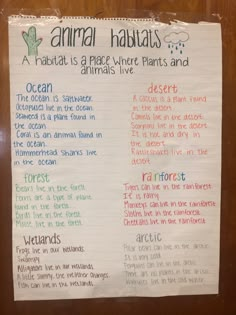 animal habitats
A habitat is a Place Where Plants and
animals live
Ocean
The Ocean is Saltwater.
Octopuses live in the ocean.
Seaweed is a plant found in
the ocean.
Coral is an animal found in
the ocean.
Hammerhead Sharks live
in the ocean.
desert
A cactus is a plant found
in the desert.
Camels live in the desert.
Scorpions live in the desert.
It is hot and dry in
the desert.
Rattlesnakes live in the
desert.
forest
Bears live in the forest.
Ferns are a type of plant
found in the forest.
Birds live in the forest.
Moose live in the forest.
rainforest
Tigers can live in the rainforest.
It is rainy.
Monkeys can live in the rainforest.
Sloths live in the rainforest.
Cheetahs live in the rainforest.
Wetlands
Frogs live in our wetlands.
live in our wetlands.
In the summer, the
Fish can live in the wetlands.
arctic
Polar bears can live in the arctic.
It is very cold
There are no plants in the arctic.
live in the cold water